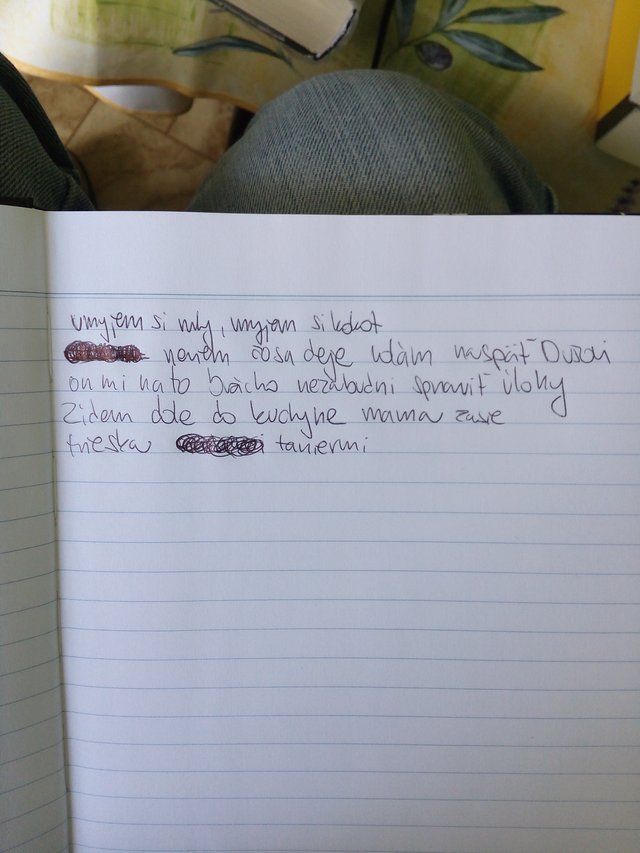 umyjem si ruky, umyjem si krk
neviem čo sa deje volám naspäť Dušovi
on mi na to Brácho nezabudni spraviť úlohy
Zídem dole do kuchyne mama zasie
trieska taniermi